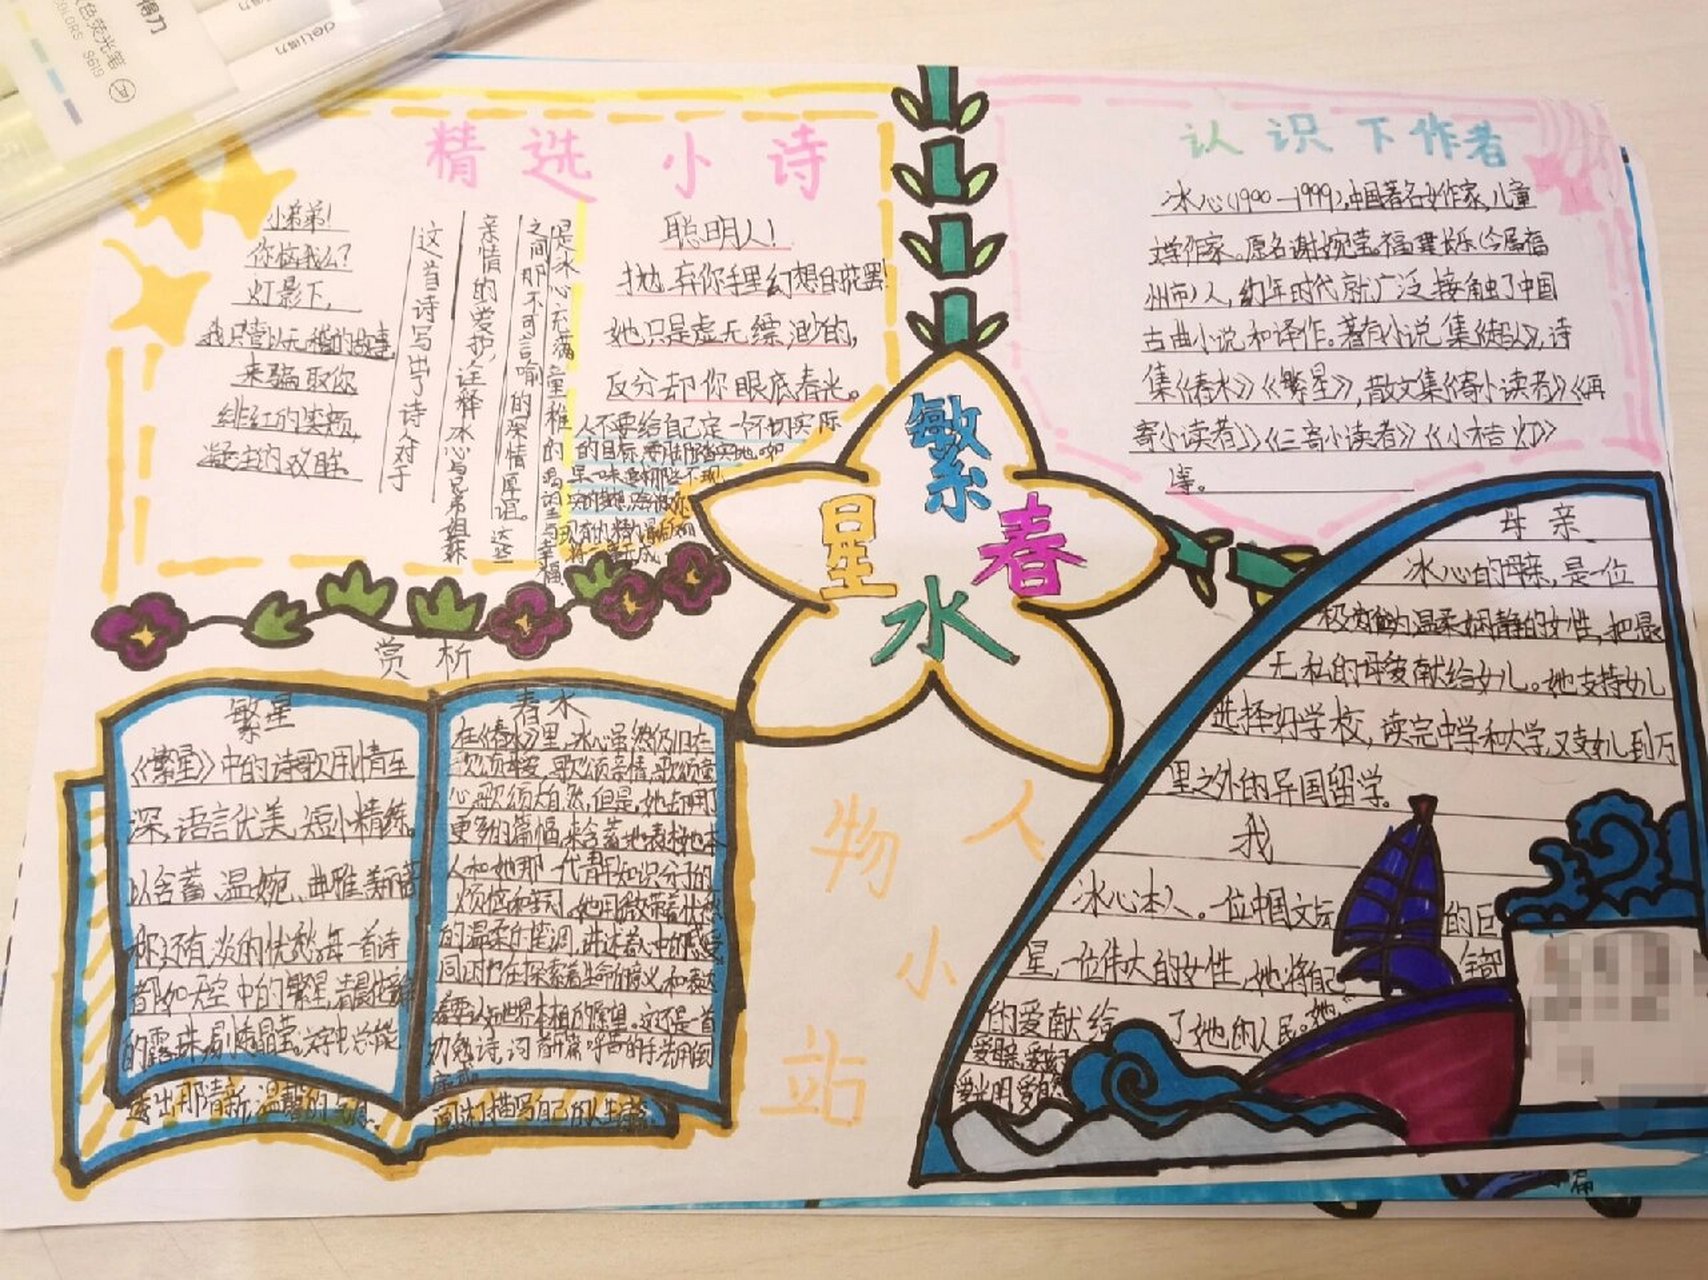 得力
色荧光笔
COLORS S619
deli得力
精选小诗
小弟弟!
你恼我么?
灯影下,
我只管以无稽的故事
来骗取你
绯红的笑颊,
凝注的双眸.
这首诗写出了诗人对于
亲情的爱护,诠释冰心与兄弟姐妹
之间那不可言喻的深情厚谊。这些
是冰心充满童稚的
聪明人!
抛弃你手里幻想的花罢!
她只是虚无缥渺的,
反分却你眼底春光。
人不要给自己定一个不切实际
的目标
认识下作者
冰心(1900-1999),中国著名女作家,儿童
文学作家。原名谢婉莹。福建长乐(今属福
州市)人,幼年时代就广泛接触了中国
古典小说和译作。著有小说集《超人》,诗
集《春水》《繁星》,散文集《寄小读者》《再
寄小读者》》《三寄小读者》《小桔灯》
等。
繁星
春水
赏析
繁星
《繁星》中的诗歌用情至
深,语言优美,短小精练。
以含蓄、温婉、典雅、美丽著
称,还有淡淡的忧愁,每一首诗
都如天空中的繁星,清晨
的露珠,剔透晶莹。文字中总能
透出那清新,温馨的气息。
春水
在《春水》里,冰心虽然仍旧在
歌颂母爱,歌颂亲情,歌颂童
心,歌颂大自然,但是,她却用了
更多的篇幅,来含蓄地表抒她本
人和她那一代青年知识分子的
烦恼和苦闷。她用微带着忧愁
的温柔的笔调,讲述着心中的感受
同时也在探索着生命的意义和表达
着要认知世界本相的愿望。这还是一首
勉诗,
间以描写自己的人生
人物小站
母亲
冰心的母亲,是一位
极为温柔娴静的女性,把
无私的母爱献给女儿。她支持女儿
选择好学校,读完中学和大学,又支女儿到万
里之外的异国留学。
我
冰心本人。一位中国文坛的巨
星,一位伟大的女性,她将自己全部
的爱献给了她的人民。她
爱光明,爱自然